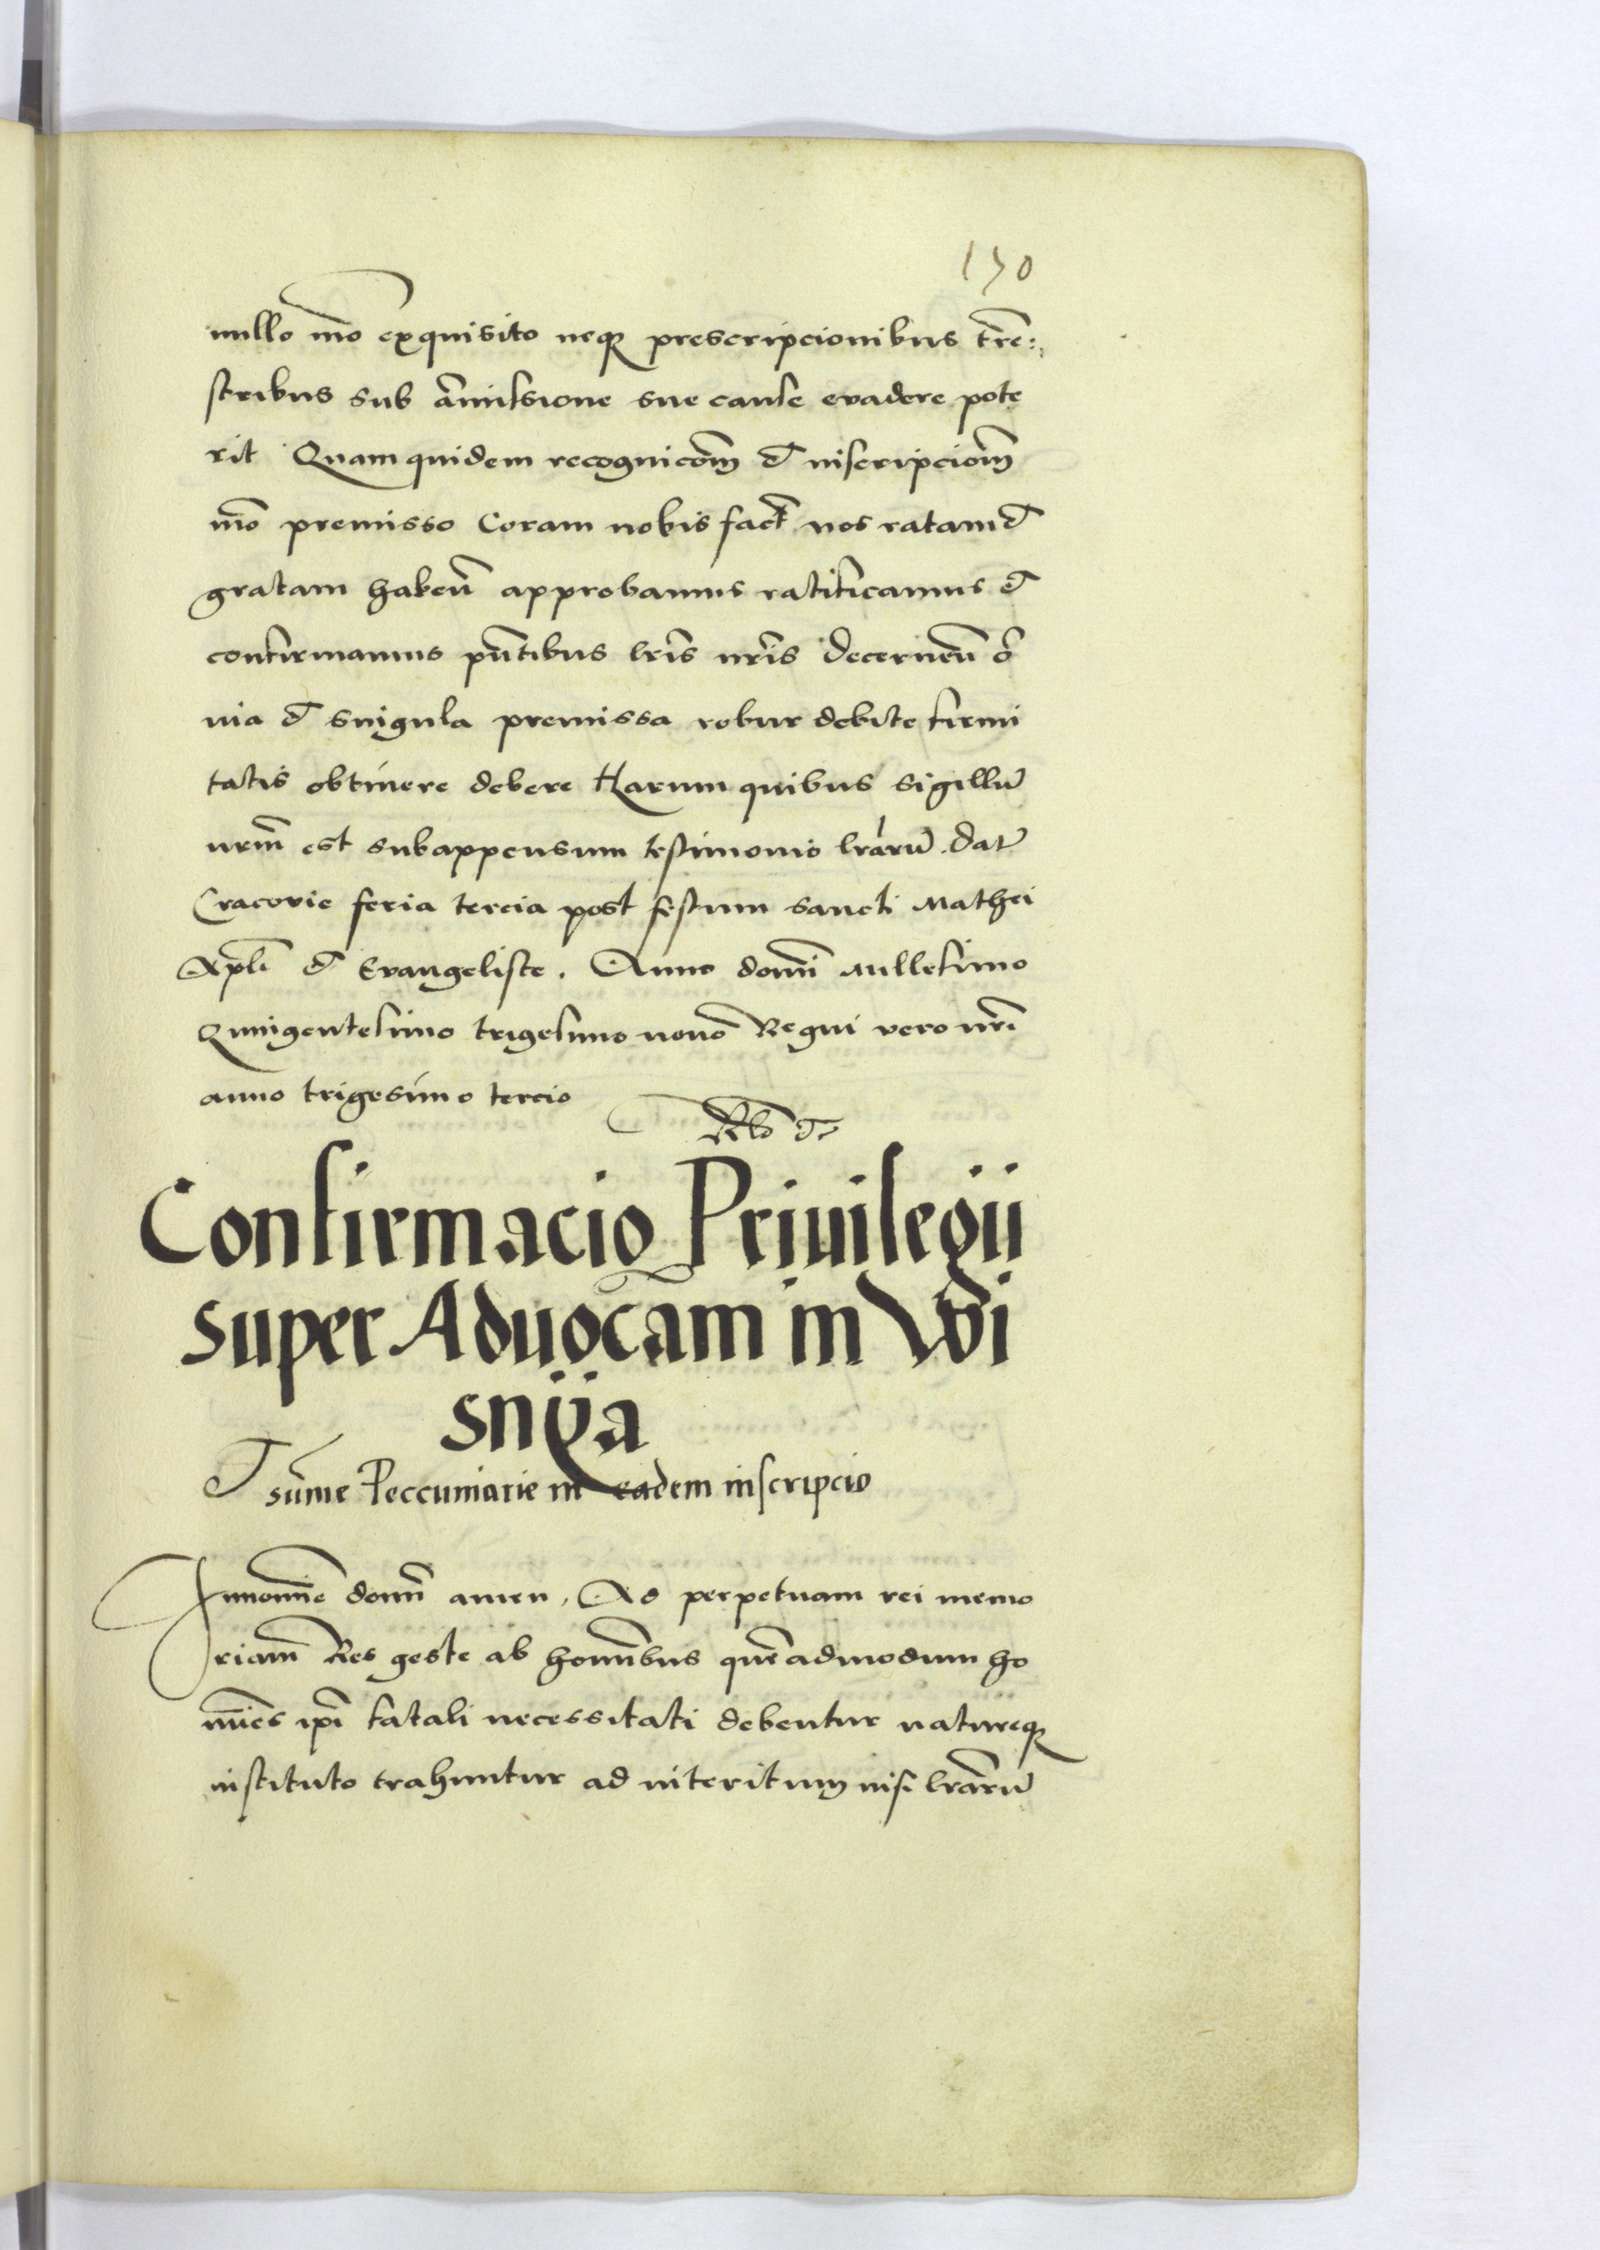 130
nullo mō exquisito neqȝ prescripcionibus tr̄re:,
stribus sub āmissione sue cause evadere pote
rit Quam quidem recognicōm et inscripciōm
mō premisso Coram nobis fact̄ nos ratam et
gratam haben̄ approbamus ratificamus et
confirmamus pn̄tibus lr̄is nr̄is decernen̄ ō
nia et singula premissa robur debite firmi
tatis obtinere debere Harum quibus sigillū
nrm̄ est subappensum testimonio lrārū dat̄
Cracovie feria tercia post festum sancti Mathei
Apl̄i et Evangeliste. Anno domī Millesimo
Quingentesimo trigesimo nono Regni vero nr̄i
anno trigesimo tercio
Confirmacio Privilegii
super Aduocam̄ in Wi
snÿa
Et sūme Peccuniarie in eadem inscripcio
In nomīe domī amen. Ad perpetuam rei memo
riam̄ Res geste ab homībus quēadmodum ho
mīes ip̄i fatali necessitati debentur natureqȝ
instituto trahuntur ad interitum nisi lrārū